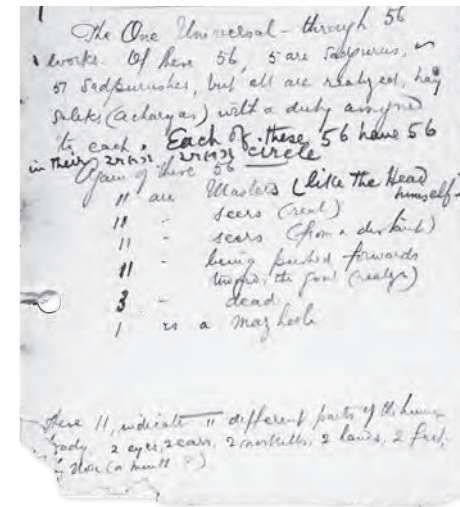 The One Universal – through 56
works. Of these 56, 5 are Sadpurus,
51 Sadpurushes, but all are realized, may
Saleks (Acharyas) with a duty assigned
to each. Each of these 56 have 56
in their circle
Again of these 56
11 are Masters (like the Head himself)
11 " seers (real)
11 " seers (from a distance)
11 " being pushed forwards
towards the goal (realzn)
3 " dead
1 is a mazhoob
These 11, indicate 11 different parts of the human
body 2 eyes, 2 ears, 2 nostrils, 2 hands, 2 feet,